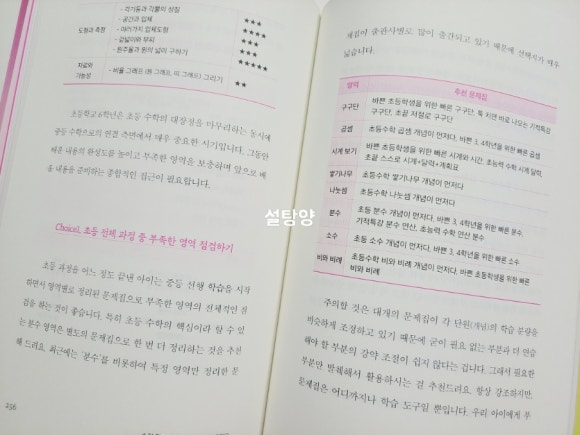 - 각기둥과 각뿔의 성질
- 공간과 입체
도형과 측정
- 여러가지 입체도형
- 겉넓이와 부피
- 원주율과 원의 넓이 구하기
★★★
★★★★
★★★
★★★★
★★★★★
자료와 가능성
- 비율 그래프(원 그래프, 띠 그래프) 그리기
★★
초등학교 6학년은 초등 수학의 대장정을 마무리하는 동시에
중등 수학으로의 연결 측면에서 매우 중요한 시기입니다. 그동안
배운 내용의 완성도를 높이고 부족한 영역을 보충하며 앞으로 배
울 내용을 준비하는 종합적인 접근이 필요합니다.
설탕양
Choice1. 초등 전체 과정 중 부족한 영역 점검하기
초등 과정을 어느 정도 끝낸 아이는 중등 선행 학습을 시작
하면서 영역별로 정리된 문제집으로 부족한 영역의 전체적인 점
검을 하는 것이 좋습니다. 특히 초등 수학의 핵심이라 할 수 있
는 분수 영역은 별도의 문제집으로 한 번 더 정리하는 것을 추천
해 드려요. 최근에는 '분수'를 비롯하여 특정 영역만 정리한 문
256
제집이 출판사별로 많이 출간되고 있기 때문에 선택지가 매우
넓습니다.
영역
추천 문제집
구구단
바쁜 초등학생을 위한 빠른 구구단, 툭 치면 바로 나오는 기적특강
구구단, 초끝 저절로 구구단
곱셈
초등수학 곱셈 개념이 먼저다, 바쁜 3, 4학년을 위한 빠른 곱셈
시계 보기
바쁜 초등학생을 위한 빠른 시계와 시간, 초능력 수학 시계·달력,
초끝 스스로 시계+달력+계획표
쌓기나무
초등수학 쌓기나무 개념이 먼저다
나눗셈
초등수학 나눗셈 개념이 먼저다
분수
초등 분수 개념이 먼저다, 바쁜 3, 4학년을 위한 빠른 분수,
기적특강 분수 연산, 초능력 수학 연산 분수
소수
초등 소수 개념이 먼저다, 바쁜 3, 4학년을 위한 빠른 소수
비와 비례
초등수학 비와 비례 개념이 먼저다, 바쁜 초등학생을 위한 빠른
비와 비례
주의할 것은 대개의 문제집이 각 단원(개념)의 학습 분량을
비슷하게 조정하고 있기 때문에 굳이 필요 없는 부분과 더 연습
해야 할 부분의 강약 조절이 쉽지 않다는 겁니다. 그래서 필요한
부분만 발췌해서 활용하시는 걸 추천드려요. 항상 강조하지만,
문제집은 어디까지나 학습 도구일 뿐입니다. 우리 아이에게 부